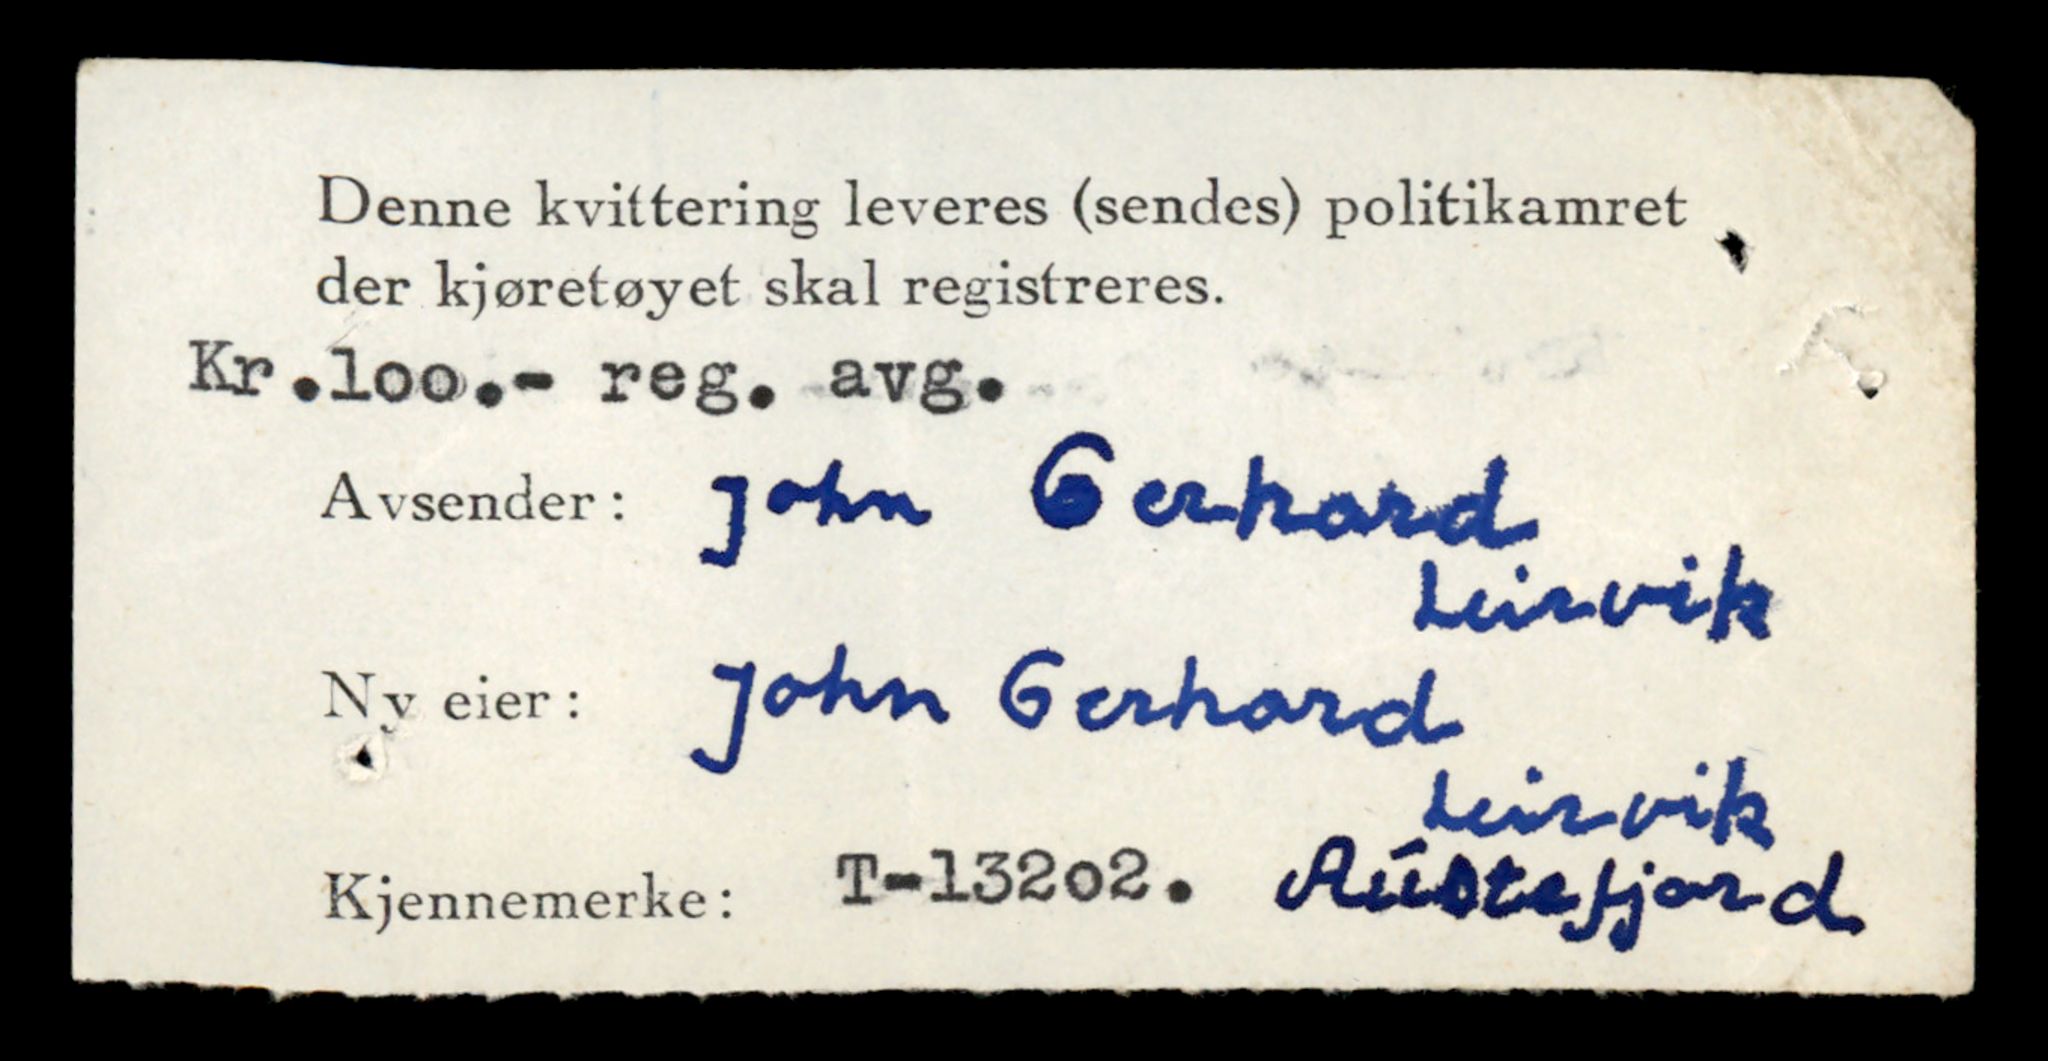 Denne kvittering leveres (sendes) politikamret
der kjøretøyet skal registreres.
Kr.loo.- reg. avg.
Avsender: John Gerhard
Leirvik
Ny eier: John Gerhard
Leirvik
Kjennemerke: T-132o2. Austefjord